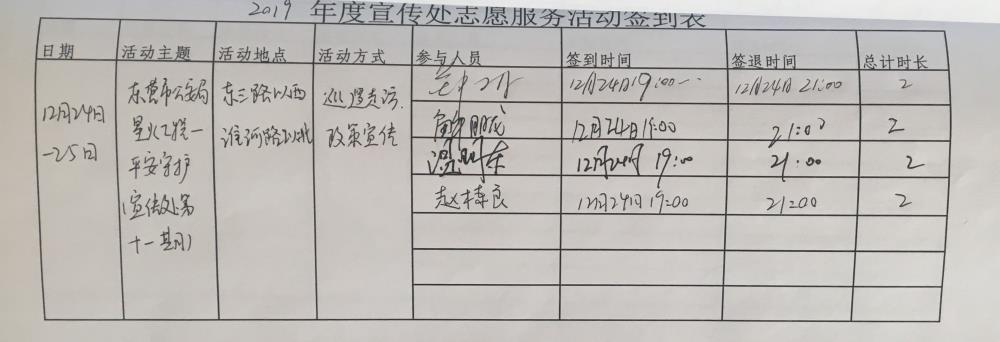 2019 年度宣传处志愿服务活动签到表
日期 活动主题 活动地点 活动方式 参与人员 签到时间 签退时间 总计时长
12月24日
-25日
东营市公安局
星火工程一
平安守护
(宣传处第
十一期)
东三路以西
淮河路以北
巡逻走访
政策宣传
12月24日19:00 12月24日 21:00 2
12月24日19:00 21:00 2
12月24日 19:00 21:00 2
赵 良 12月24日19:00 21:00 2